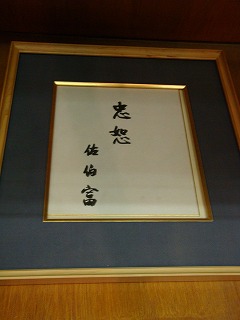 忠恕
佐伯富